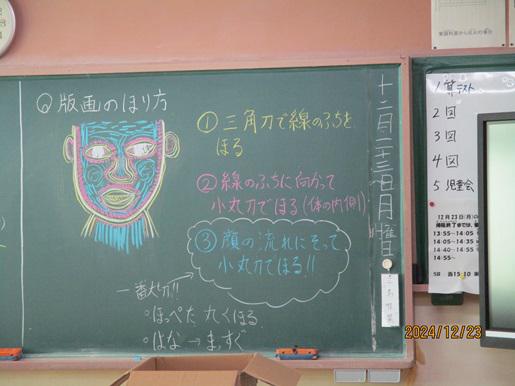 ◎版画のほり方
①三角刀で線のふちを
ほる
②線のふちに向かって
小丸刀でほる(体の内側)
③顔の流れにそって
小丸刀でほる!!
一番大切!!
・ほっぺた 丸くほる
・はな → まっすぐ
十二月二十三日月曜日
1 算テスト
2 図
3 図
4 図
5 児童会
12月23日(月)の
13:55~14:05
14:05~14:35
14:40~14:55
14:55~
2024/12/23